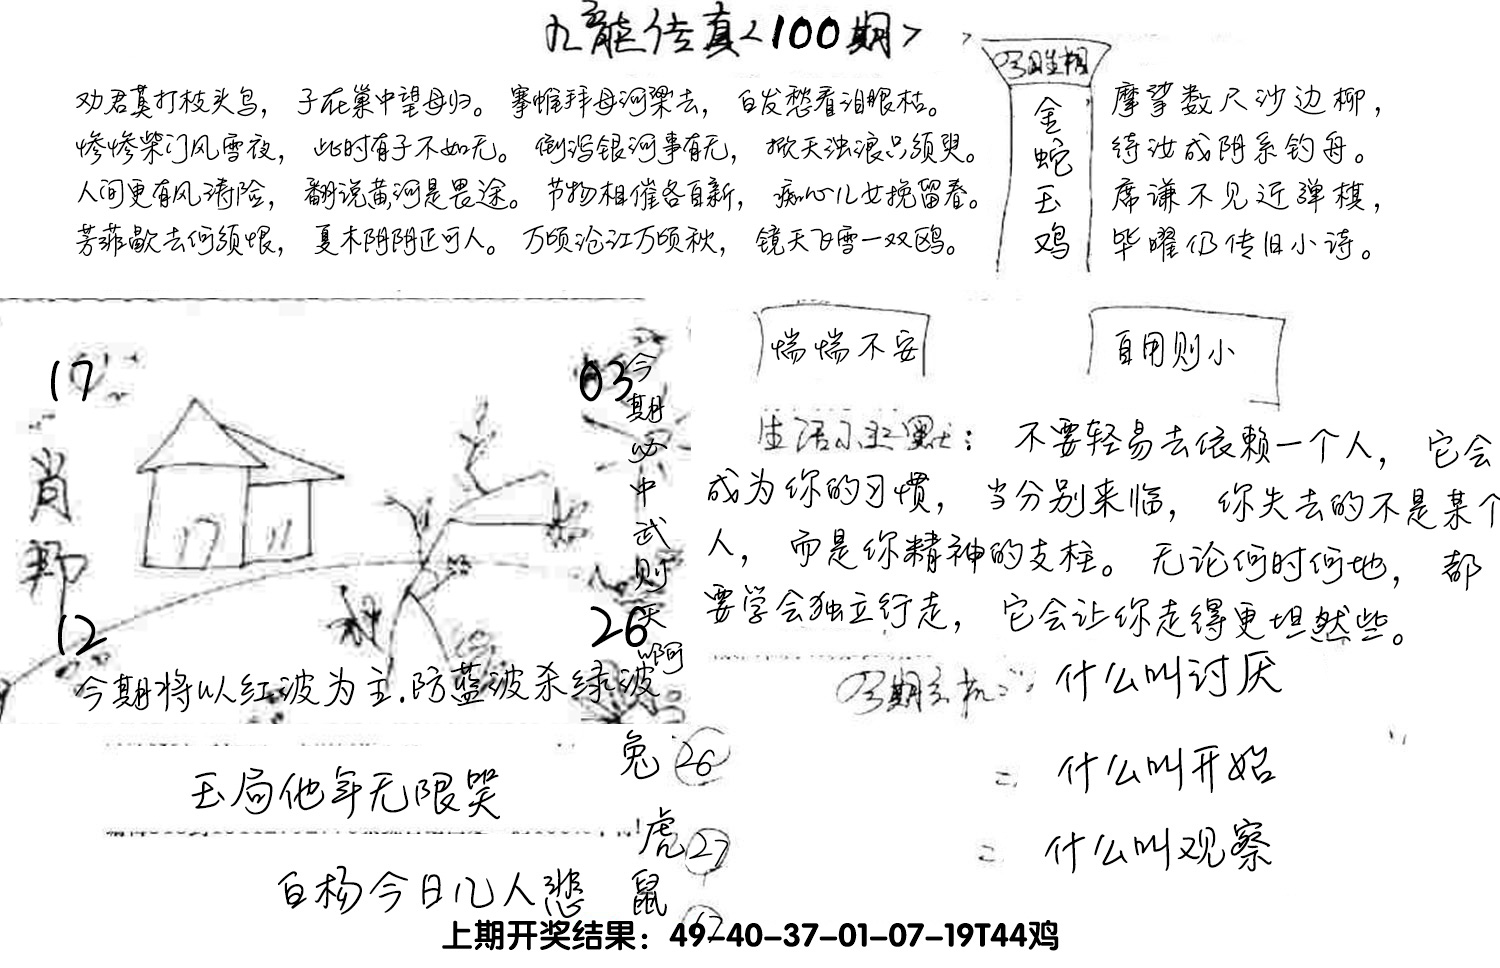 九龍传真<100期>
劝君莫打枝头鸟，子在巢中望母归。搴帷拜母河梁去，白发愁看泪眼枯。
惨惨柴门风雪夜，此时有子不如无。倒泻银河事有无，掀天浊浪只须臾。
人间更有风涛险，翻说黄河是畏途。节物相催各自新，痴心儿女挽留春。
芳菲歇去何须恨，夏木阴阴正可人。万顷沧江万顷秋，镜天飞雪一双鸥。
金蛇玉鸡
摩挲数尺沙边柳，
待汝成阴系钓舟。
席谦不见近弹棋，
毕曜仍传旧小诗。
17
03
12
26
肖
今期必中武则天啊
今期将以红波为主.防蓝波杀绿波
惴惴不安
自用则小
生活小幽默：不要轻易去依赖一个人，它会
成为你的习惯，当分别来临，你失去的不是某个
人，而是你精神的支柱。无论何时何地，都
要学会独立行走，它会让你走得更坦然些。
什么叫讨厌
= 什么叫开始
= 什么叫观察
玉局他年无限哭
白杨今日几人悲
兔 26
虎 27
鼠
上期开奖结果：49-40-37-01-07-19T44鸡